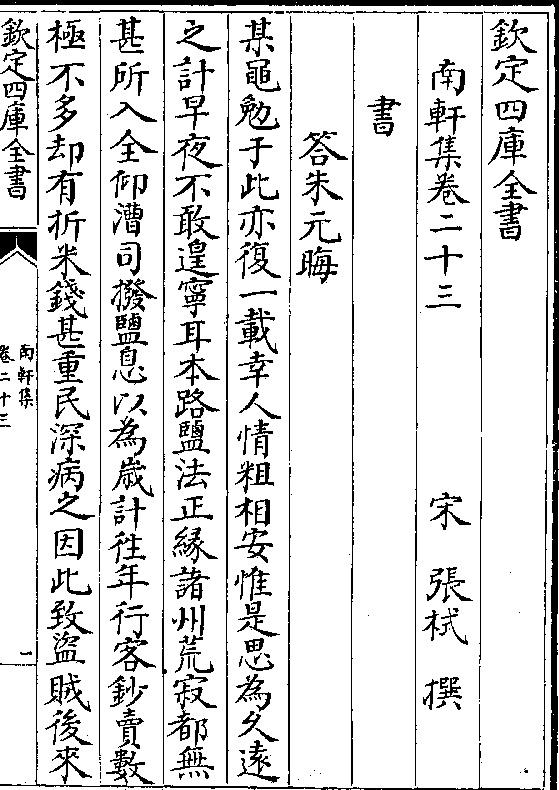 欽定四庫全書
南軒集卷二十三
宋 張栻 撰
書
答朱元晦
某黽勉于此亦復一載幸人情粗相安惟是思為久遠
之計早夜不敢遑寧耳本路鹽法正緣諸州荒寂都無
甚所入全仰漕司撥鹽息以為歲計徃年行客鈔賣數
極不多却有折米錢甚重民深病之因此致盜賊後來
欽定四庫全書
南軒集
卷二十三
一